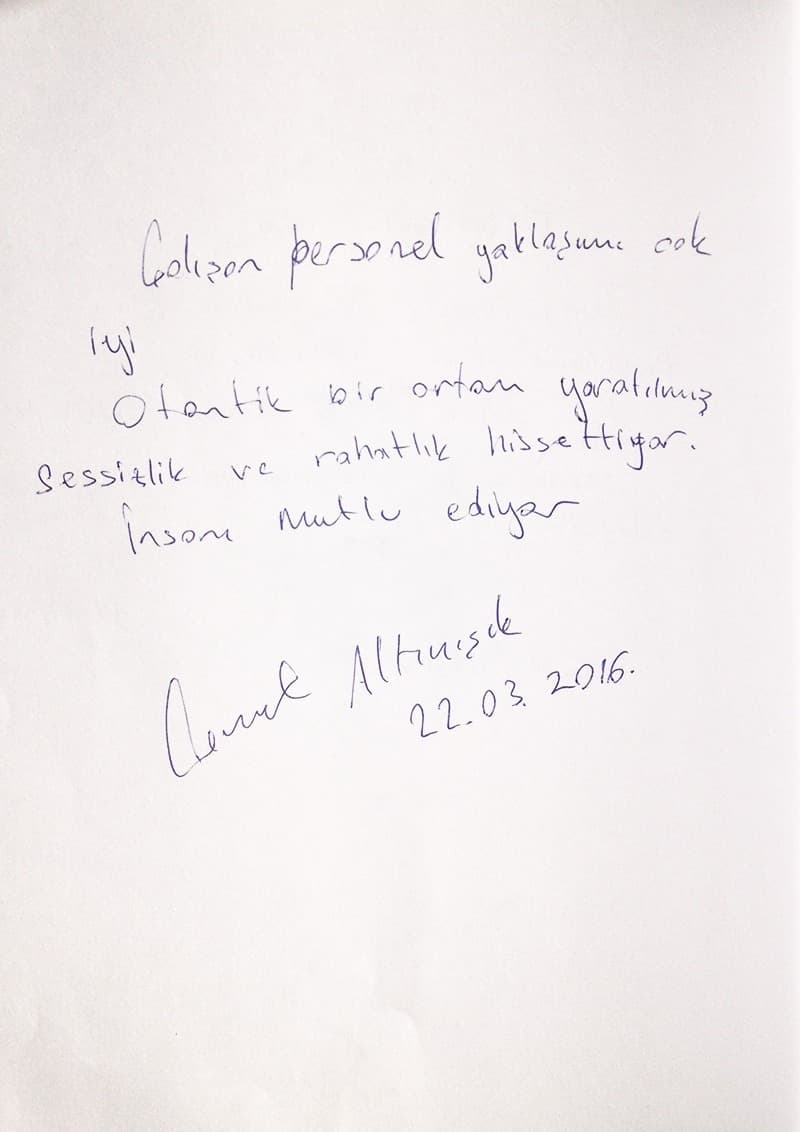 Çalışan personel yaklaşımı cok
iyi
Otantik bir ortam yaratılmış
Sessizlik ve rahatlık hissettiyor.
İnsanı mutlu ediyor
Altınışık
22.03.2016.